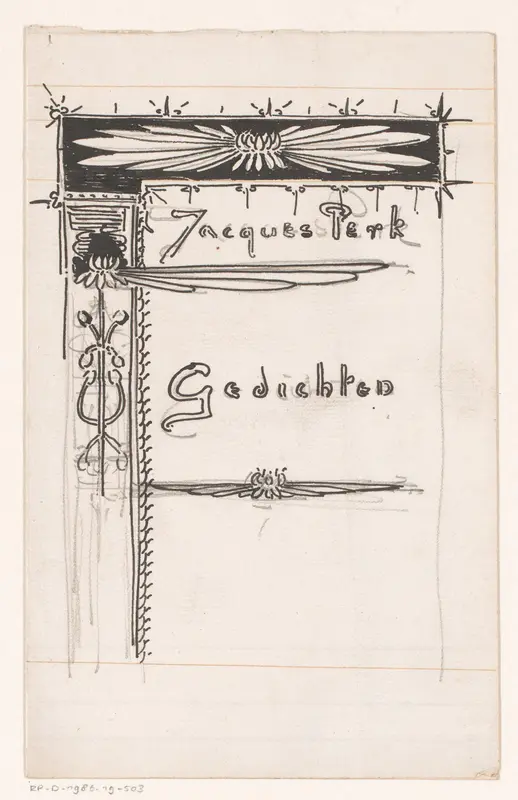 Jacques Perk
Gedichten
RP-D-1985-19-503